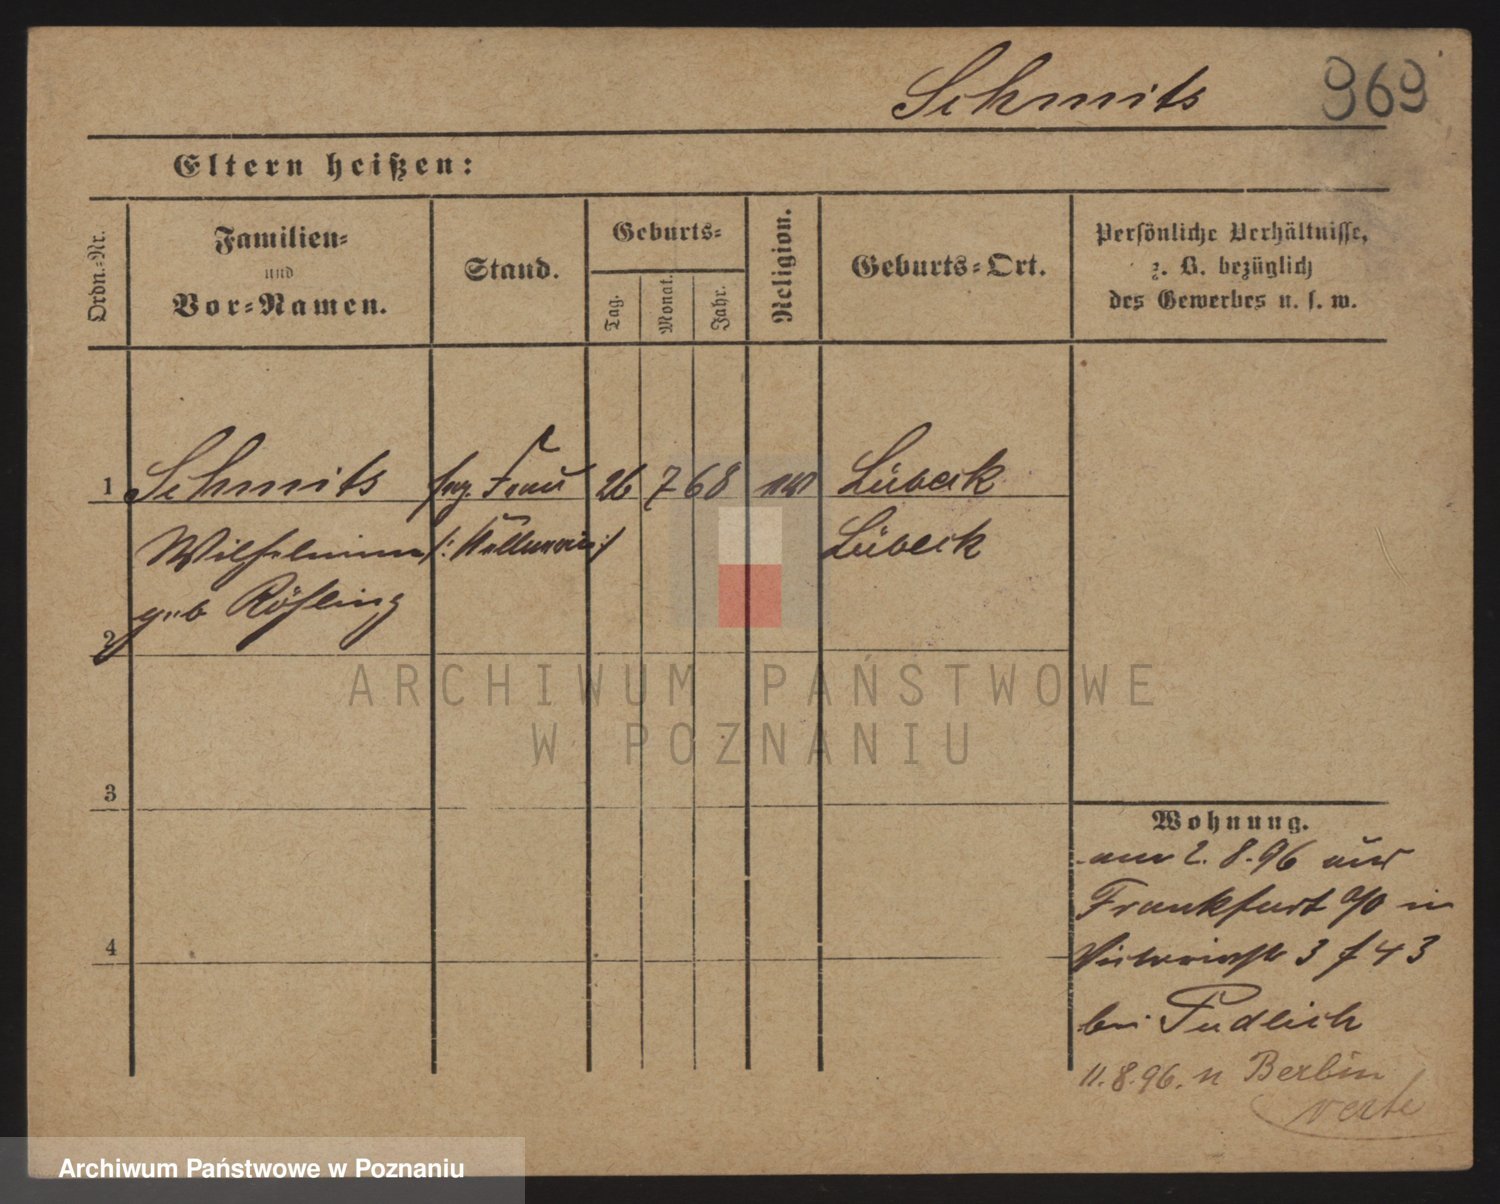 Schmits 969
Eltern heißen:
Ordn.-Nr.
Familien-
und
Vor-Namen.
Stand.
Geburts-
Tag.
Monat.
Jahr.
Religion.
Geburts-Ort.
Persönliche Verhältnisse,
z. B. bezüglich
des Gewerbes u. s. w.
1 Schmits Frau 26 7 68 Lübeck
Wilhelmine /: Kellnerin :/ Lübeck
geb Röhling
2
3
4
Wohnung.
am 2. 8. 96 aus
Frankfurt a/O in
Victoriastr 3 f 43
bei Pudlich
11. 8. 96. n Berlin
verte
ARCHIWUM PAŃSTWOWE
W POZNANIU
Archiwum Państwowe w Poznaniu